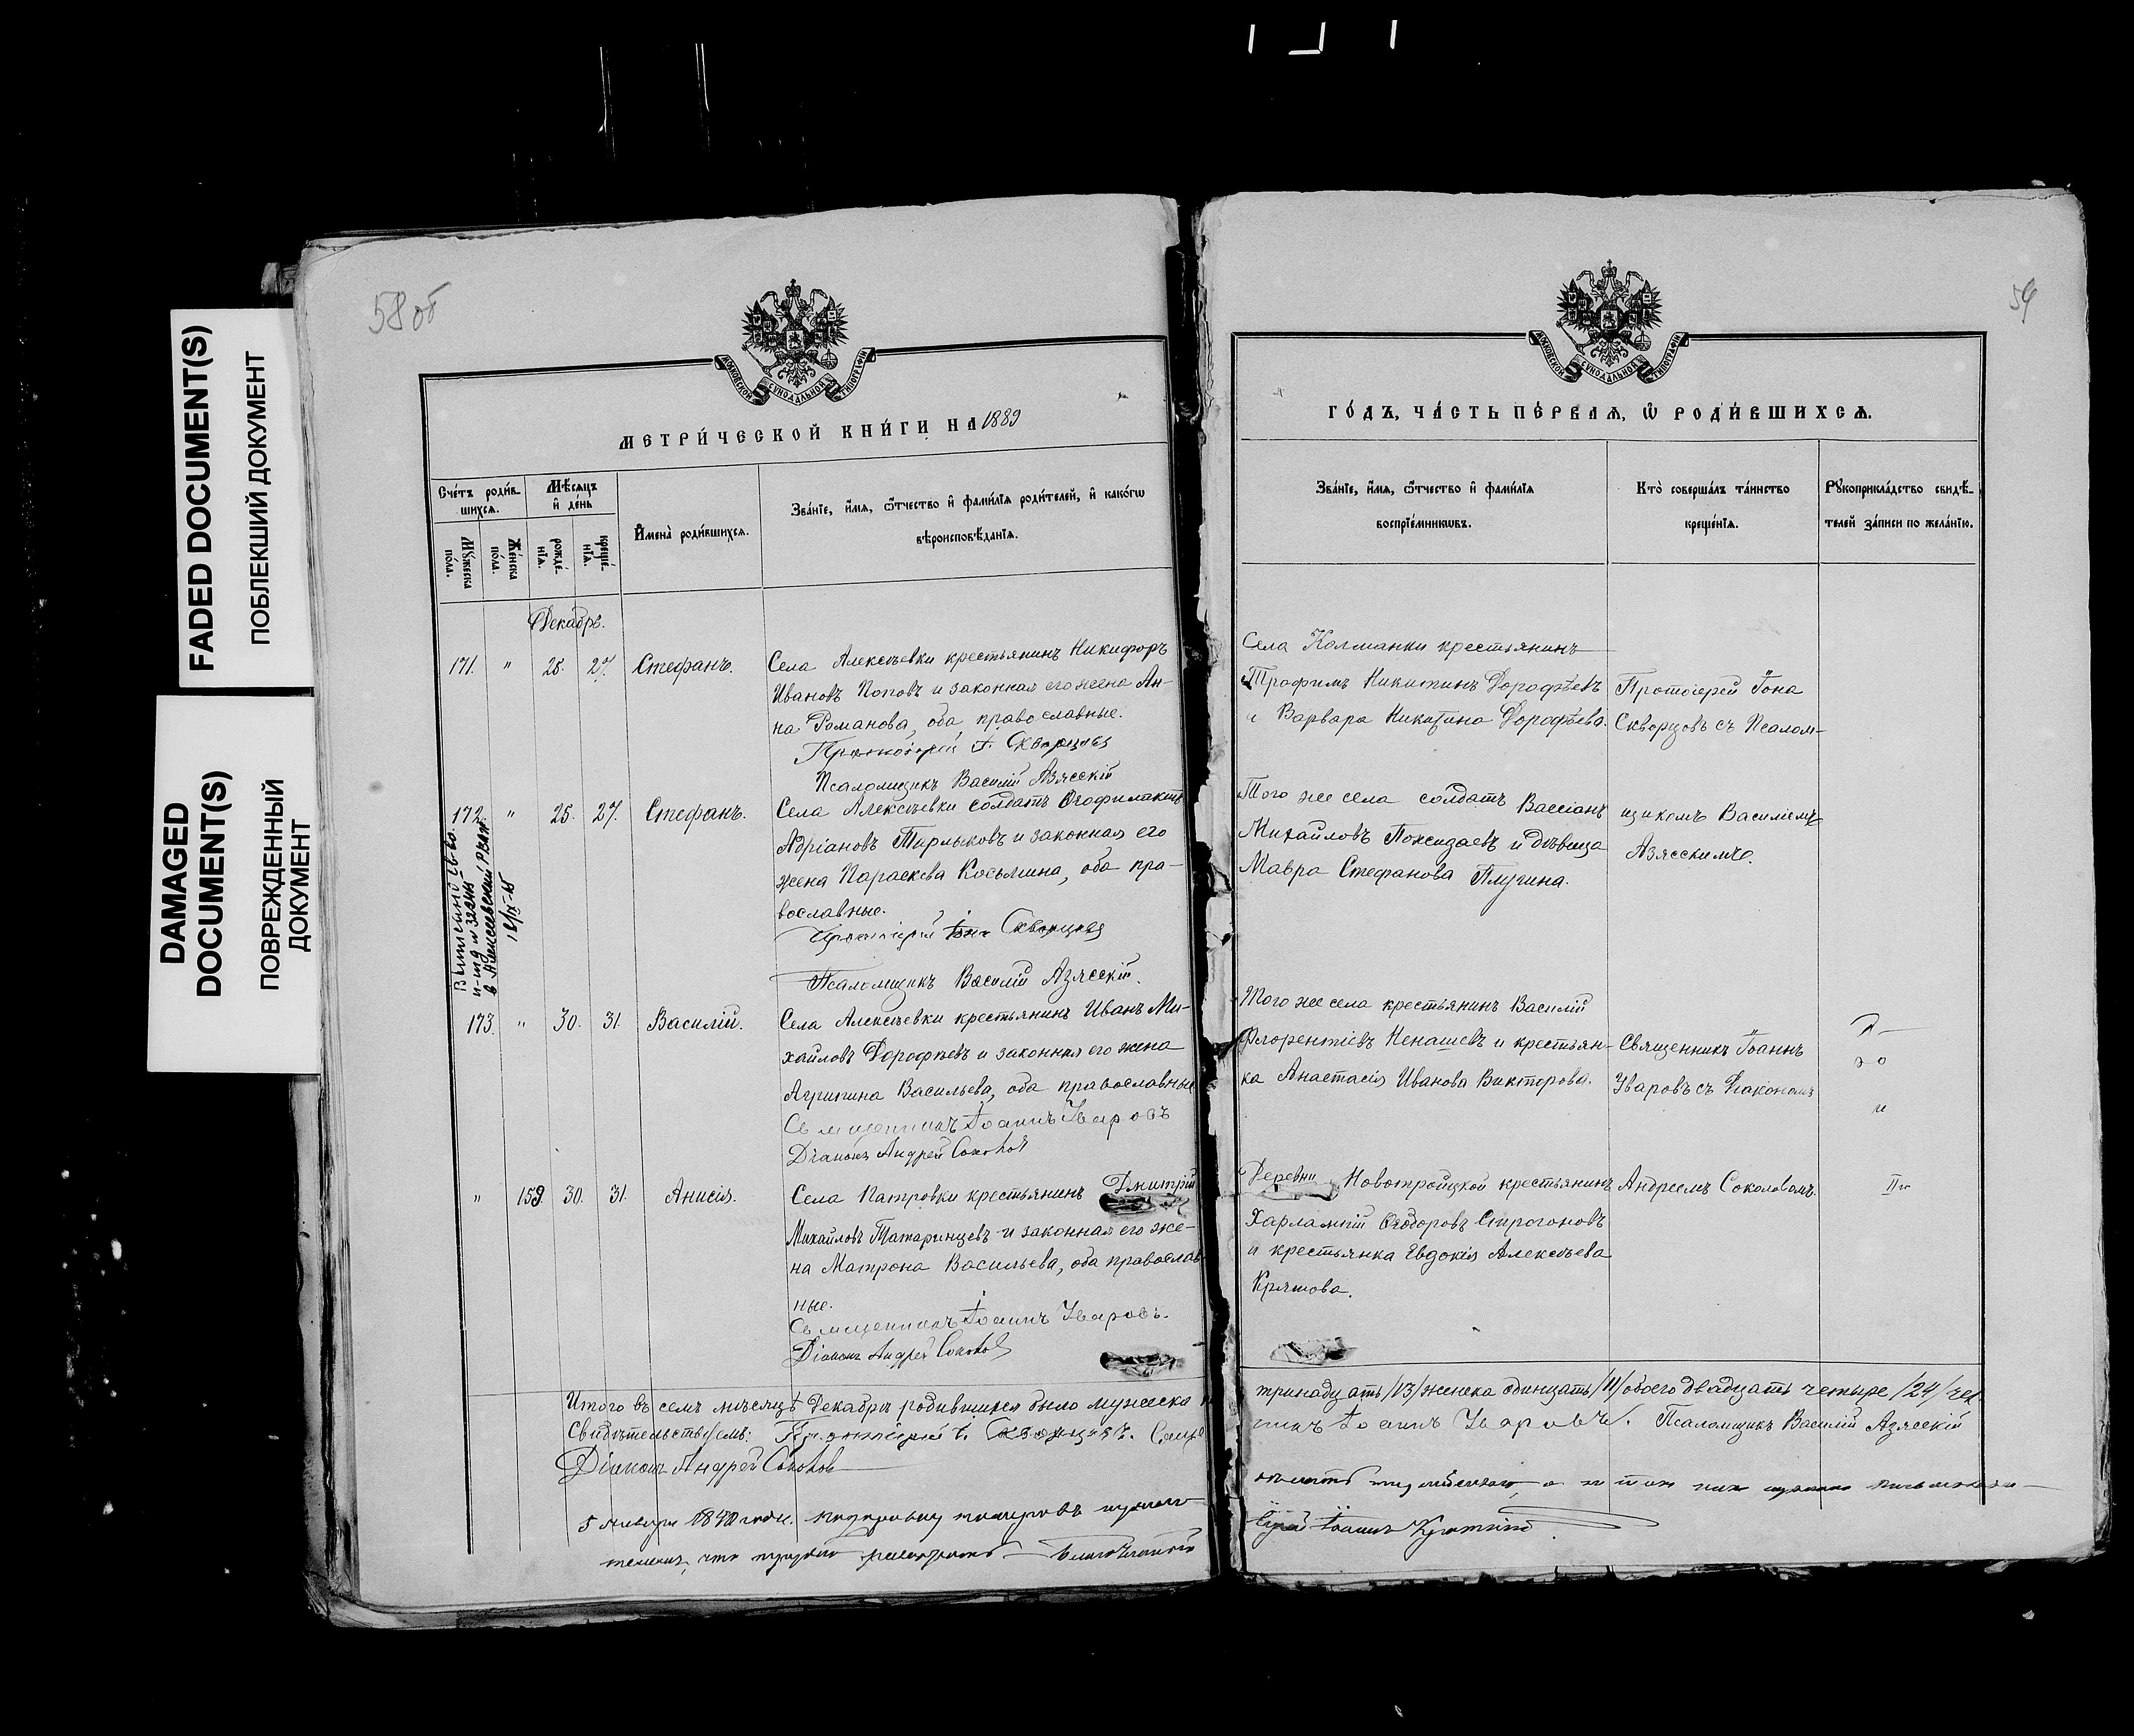 FADED DOCUMENT(S)
ПОБЛЕКШИЙ ДОКУМЕНТ
DAMAGED
DOCUMENT(S)
ПОВРЕЖДЕННЫЙ
ДОКУМЕНТ
58 об
МОСКОВСКОЙ СѴНОДАЛЬНОЙ ТИПОГРАФІИ
МЕТРИ́ЧЕСКОЙ КНИ́ГИ НА 1889
Сче́тъ роди́в-
шихсѧ.
Мѣ́сѧцъ
и҆ де́нь
И҆мена̀ роди́вшихсѧ.
Зва́нїе, и҆́мѧ, ѻ҆́тчество и҆ фами́лїѧ роди́телей, и҆ како́гѡ
вѣроисповѣ́данїѧ.
Мꙋ́жеска
по́ла.
Же́нска
по́ла.
рожде́-
нїѧ.
креще́-
нїѧ.
Декабрь.
171. " 25. 27. Стефанъ.
Села Алексѣевки крестьянинъ Никифоръ
Ивановъ Поповъ и законная его жена Ан-
на Романова, оба православные.
Протоіерей І. Скворцовъ
Псаломщикъ Василій Азясскій
172. " 25. 27. Стефанъ.
Села Алексѣевки солдатъ Ѳеофилактъ
Адріановъ Тырлыковъ и законная его
жена Параскева Косьмина, оба пра-
вославные.
Протоіерей Іона Скворцовъ
Псаломщикъ Василій Азясскій.
в Алексеевский
173. " 30. 31. Василій.
Села Алексѣевки крестьянинъ Иванъ Ми-
хайловъ Дорофѣевъ и законная его жена
Агрипина Васильева, оба православные
Священникъ Іоаннъ Уваровъ
Діаконъ Андрей Соколов
" 159 30. 31. Анисія.
Села Патровки крестьянинъ Дмитрій
Михайловъ Татаринцевъ и законная его же-
на Матрона Васильева, оба православ
ные.
Священникъ Іоаннъ Уваровъ.
Діаконъ Андрей Соколов
Итого въ семъ мѣсяцѣ Декабрѣ родившихся было мужеска
Свидѣтельствуемъ: Протоіерей І. Скворцовъ.
Діаконъ Андрей Соколов
5 Января
59
МОСКОВСКОЙ СѴНОДАЛЬНОЙ ТИПОГРАФІИ
ГО́ДЪ, ЧА́СТЬ ПЕ́РВАѦ, Ѡ҆ РОДИ́ВШИХСѦ.
Зва́нїе, и҆́мѧ, ѻ҆́тчество и҆ фами́лїѧ
воспрїе́мникѡвъ.
Кто̀ соверша́лъ та́инство
креще́нїѧ.
Рꙋкоприкла́дство свидѣ́-
телей за́писи по жела́нїю.
Села Колманки крестьянинъ
Трофимъ Никитинъ Дорофѣевъ
и Варвара Никитина Дорофѣева.
Протоіерей Іона
Скворцовъ съ Псалом-
Того же села солдатъ Вассіанъ
Михайловъ Пожидаевъ и дѣвица
Мавра Стефанова Плугина.
щикомъ Василіемъ
Азясскимъ.
Того же села крестьянинъ Василій
Флорентіевъ Ненашевъ и крестьян-
ка Анастасія Иванова Викторова.
Священникъ Іоаннъ
Уваровъ съ Діакономъ
Деревни Новотроицкой крестьянинъ
Харлампій Ѳеодоровъ Строгоновъ
и крестьянка Евдокія Алексѣева
Кряшова.
Андреемъ Соколовымъ.
тринадцать /13/ женска одинцать /11/ обоего двадцать четыре /24/ чел.
никъ Іоаннъ Уваровъ. Псаломщикъ Василій Азясскій